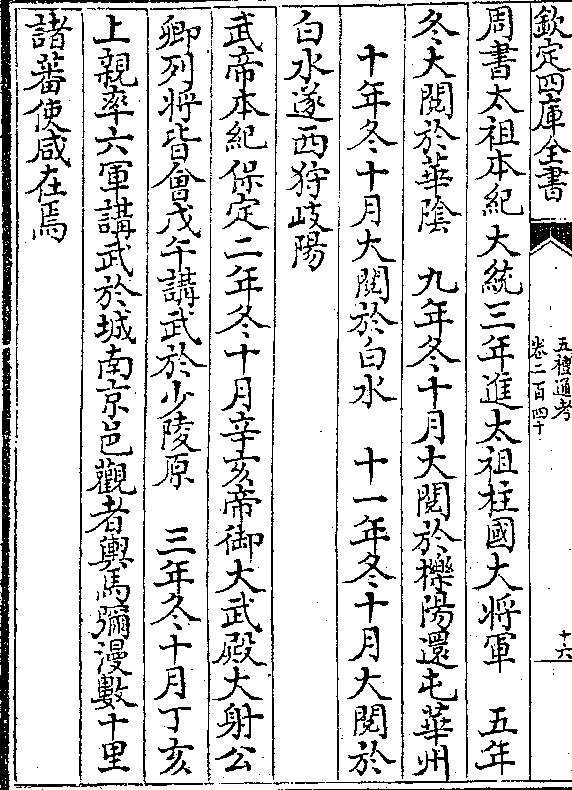 欽定四庫全書
五禮通考
卷二百四十
十六
周書太祖本紀大統三年進太祖柱國大將軍 五年
冬大閱於華陰 九年冬十月大閱於櫟陽還屯華州
十年冬十月大閱於白水 十一年冬十月大閱於
白水遂西狩岐陽
武帝本紀保定二年冬十月辛亥帝御大武殿大射公
卿列將皆會戊午講武於少陵原 三年冬十月丁亥
上親率六軍講武於城南京邑觀者輿馬彌漫數十里
諸蕃使咸在焉